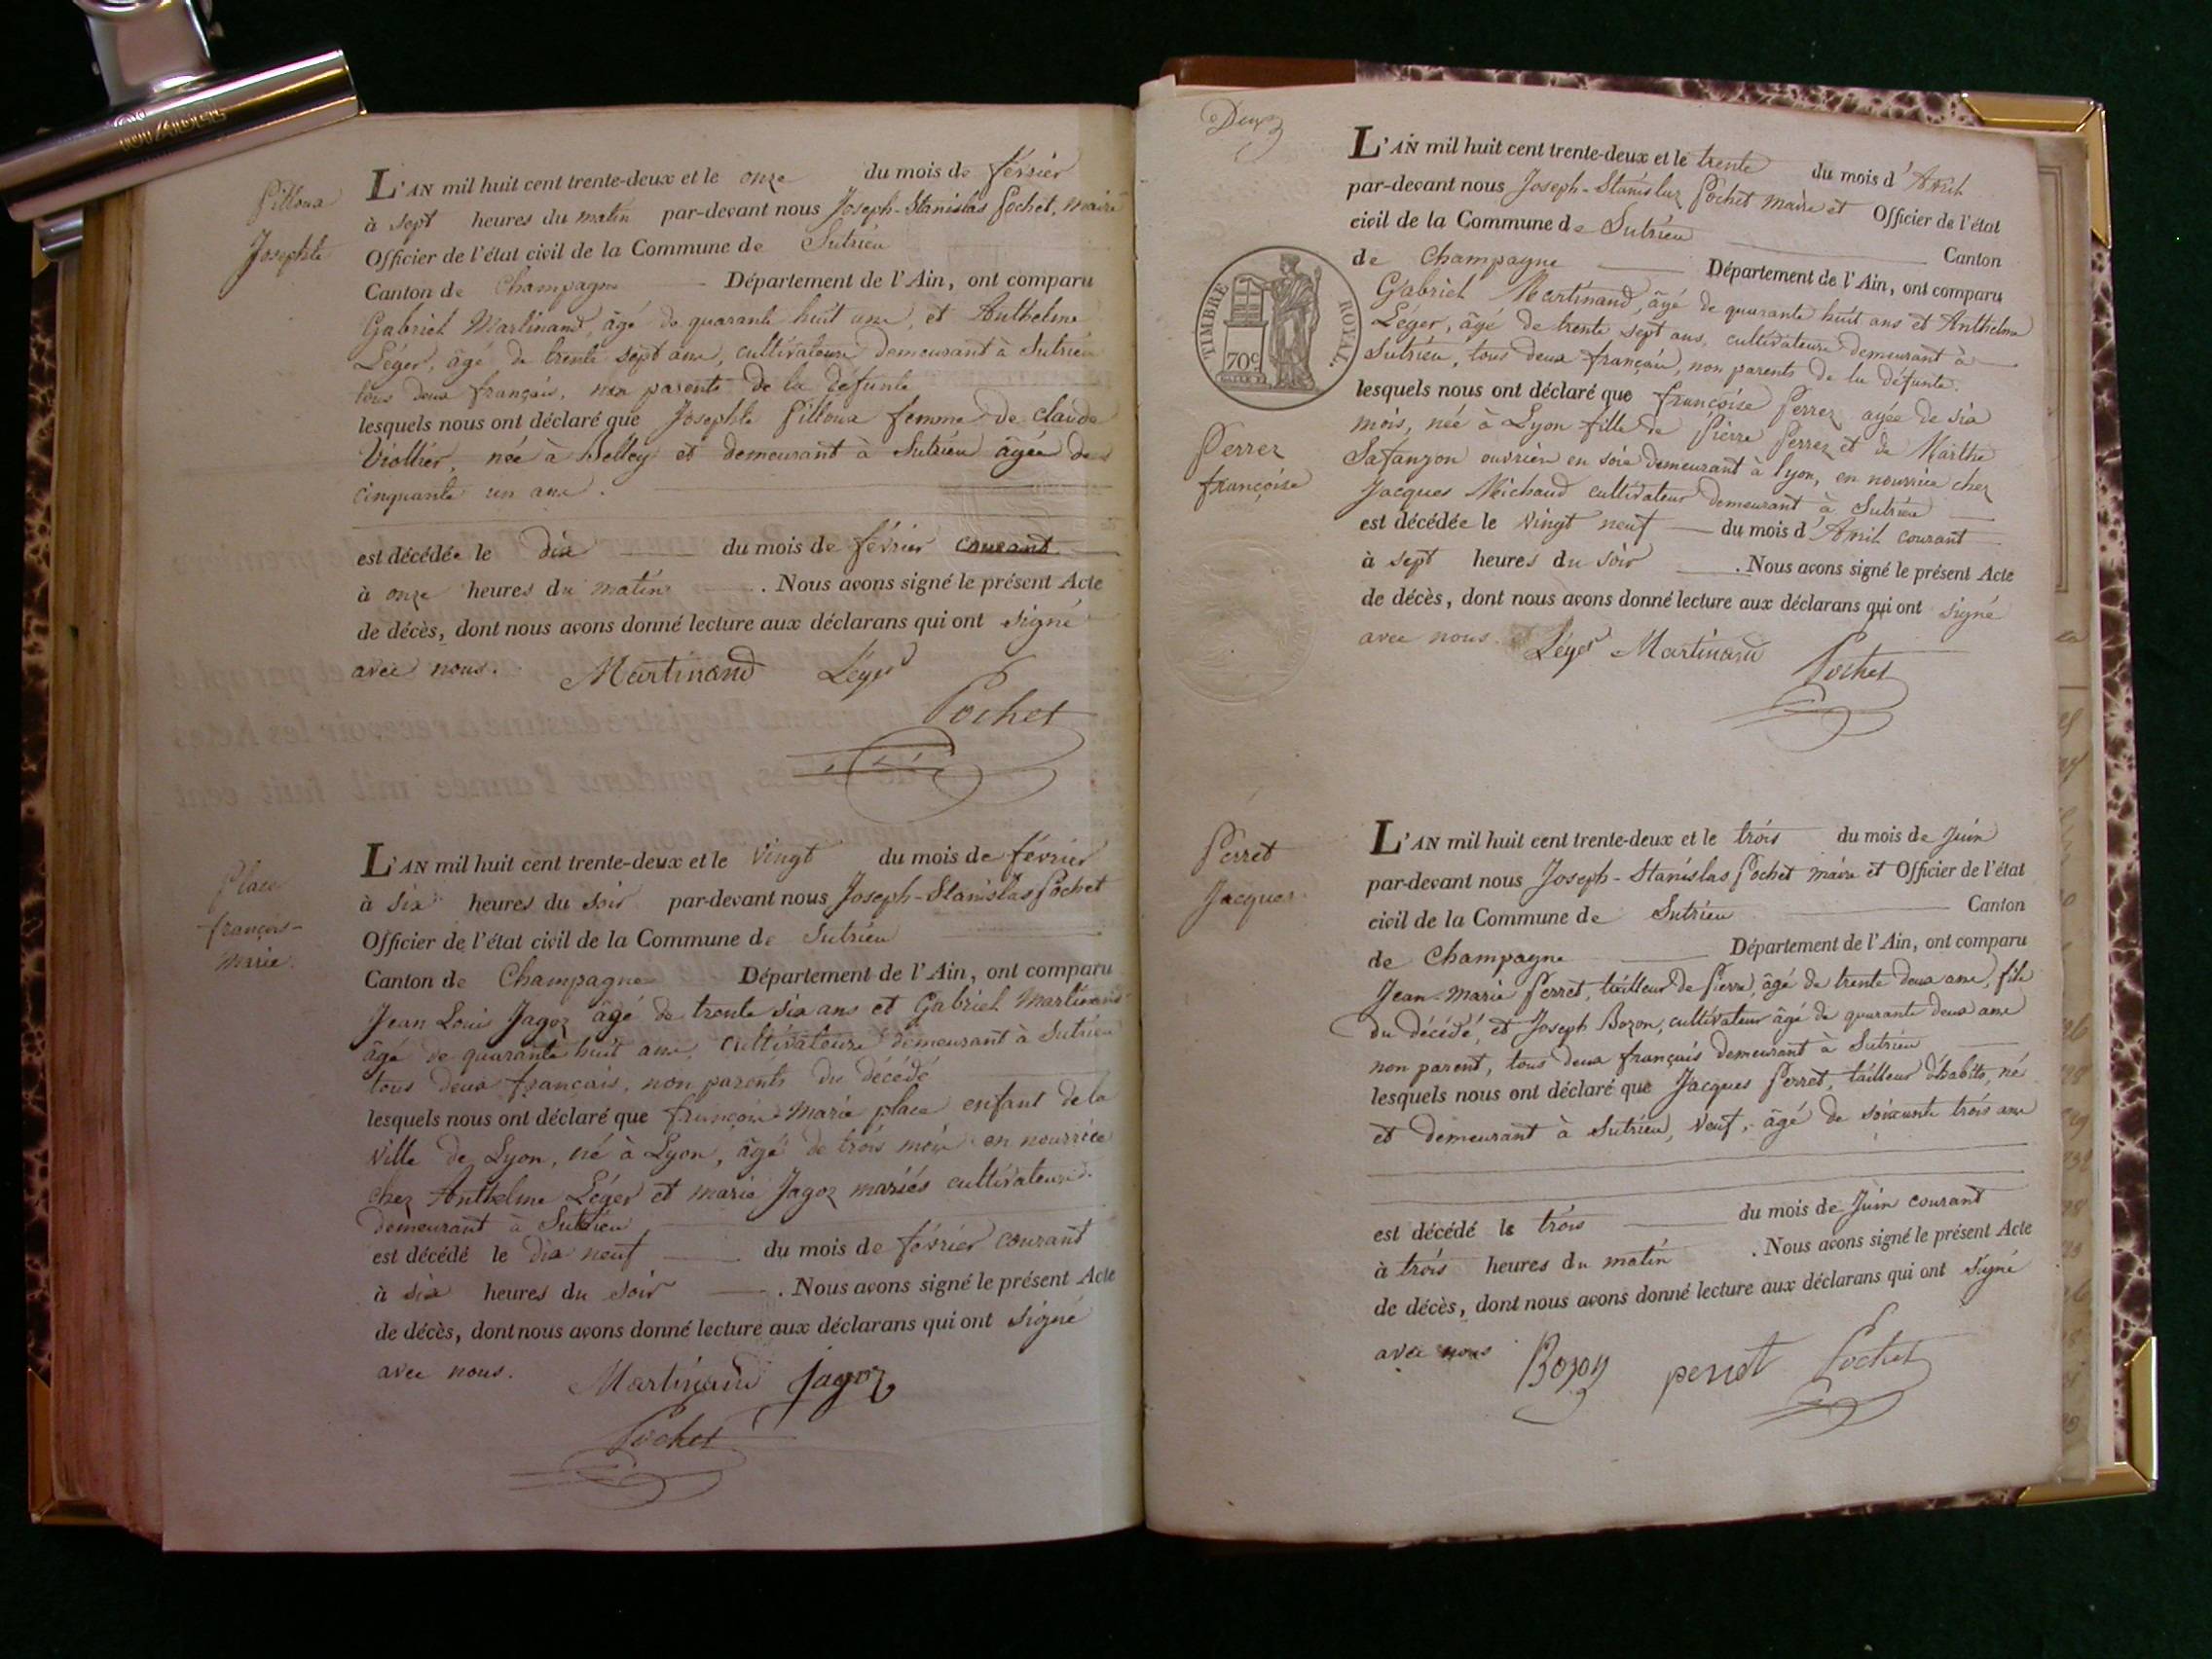 Pilloux
Josephte
L'AN mil huit cent trente-deux et le onze du mois de février
à sept heures du matin par-devant nous Joseph-Stanislas Pochet, maire
Officier de l'état civil de la Commune de Sutrieu
Canton de Champagne Département de l'Ain, ont comparu
Gabriel Martinand, âgé de quarante huit ans, et Anthelme
Léger, âgé de trente sept ans, cultivateurs demeurant à Sutrieu
tous deux français, non parents de la défunte
lesquels nous ont déclaré que Josephte Pilloux femme de Claude
Viollier, née à Belley et demeurant à Sutrieu âgée de
cinquante un ans.
est décédée le dix du mois de février courant
à onze heures du matin. Nous avons signé le présent Acte
de décès, dont nous avons donné lecture aux déclarans qui ont signé
avec nous. Martinand Léger
Pochet
Place
françois-
marie.
L'AN mil huit cent trente-deux et le vingt du mois de février
à six heures du soir par-devant nous Joseph-Stanislas Pochet
Officier de l'état civil de la Commune de Sutrieu
Canton de Champagne Département de l'Ain, ont comparu
Jean Louis Jagoz âgé de trente six ans et Gabriel Martinand
âgé de quarante huit ans, cultivateurs demeurant à Sutrieu
tous deux français, non parents du décédé
lesquels nous ont déclaré que françois-marie place enfant de la
ville de Lyon, né à Lyon, âgé de trois mois en nourrice
chez Anthelme Léger et marie Jagoz mariés cultivateurs.
demeurant à Sutrieu
est décédé le dix neuf du mois de février courant
à six heures du soir. Nous avons signé le présent Acte
de décès, dont nous avons donné lecture aux déclarans qui ont signé
avec nous. Martinand Jagoz
Pochet
Deux
L'AN mil huit cent trente-deux et le trente du mois d'Avril
par-devant nous Joseph-Stanislas Pochet maire et Officier de l'état
civil de la Commune de Sutrieu Canton
de Champagne Département de l'Ain, ont comparu
Gabriel Martinand, âgé de quarante huit ans et Anthelme
Léger, âgé de trente sept ans, cultivateurs demeurant à
Sutrieu, tous deux français, non parents de la défunte.
TIMBRE ROYAL.
70c
Perrez
françoise
lesquels nous ont déclaré que françoise Perrez agée de six
mois, née à Lyon fille de Pierre Perrez et de Marthe
Safanzon ouvriers en soie demeurant à Lyon, en nourrice chez
Jacques Michaud cultivateur demeurant à Sutrieu
est décédée le vingt neuf du mois d'Avril courant
à sept heures du soir. Nous avons signé le présent Acte
de décès, dont nous avons donné lecture aux déclarans qui ont signé
avec nous. Léger Martinand
Pochet
Perret
Jacques
L'AN mil huit cent trente-deux et le trois du mois de Juin
par-devant nous Joseph-Stanislas Pochet maire et Officier de l'état
civil de la Commune de Sutrieu Canton
de Champagne Département de l'Ain, ont comparu
Jean-marie Perret, tailleur de Pierre, âgé de trente deux ans, fils
du décédé, et Joseph Bozon, cultivateur âgé de quarante deux ans
non parent, tous deux français demeurant à Sutrieu
lesquels nous ont déclaré que Jacques Perret, tailleur d'habits, né
et demeurant à Sutrieu, veuf, âgé de soixante trois ans
est décédé le trois du mois de Juin courant
à trois heures du matin. Nous avons signé le présent Acte
de décès, dont nous avons donné lecture aux déclarans qui ont signé
avec nous Bozon perret Pochet